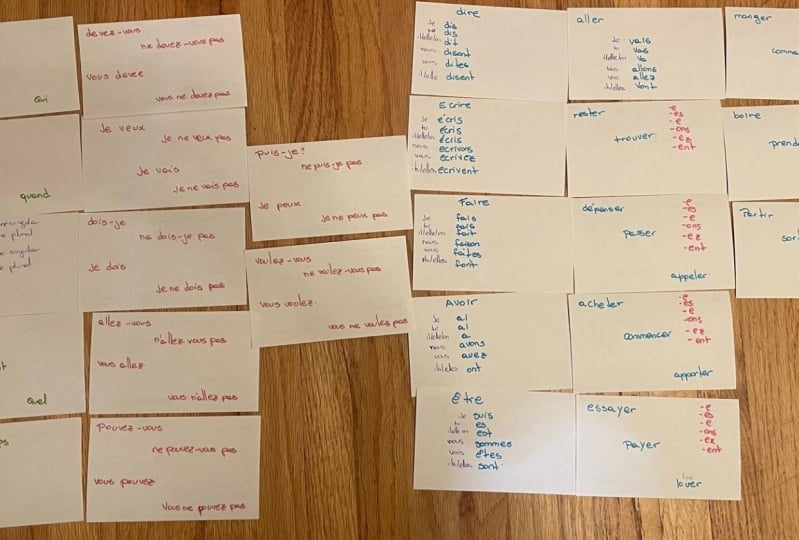 Qui
quand
Quel
devez-vous
ne devez-vous pas
vous devez
vous ne devez pas
Je veux
Je ne veux pas
Je vais
Je ne vais pas
dois-je
ne dois-je pas
Je dois
Je ne dois pas
allez-vous
n'allez vous pas
vous allez
vous n'allez pas
Pouvez-vous
ne pouvez-vous pas
vous pouvez
Vous ne pouvez pas
puis-je?
ne puis-je pas
Je peux
Je ne peux pas
Voulez-vous
ne voulez-vous pas
vous voulez.
vous ne voulez pas
dire
Je dis
tu dis
il/elle/on dit
nous disent
vous dites
ils/elle disent
Ecrire
Je écris
tu écris
il/elle/on écris
nous écrivons
vous écrivez
ils/elles écrivent
Faire
Je fais
tu fais
il/elle/on fait
nous faison
vous faites
ils/elles font
Avoir
Je ai
tu ai
il/elle/on a
nous avons
vous avez
ils/elles ont
être
Je suis
tu es
il/elle/on est
nous sommes
vous êtes
ils/elles sont.
aller
Je vais
tu vas
il/elle/on va
allons
vous allez
ils/elles vont
rester
trouver.
-e
-es
-e
-ons
-ez
-ent
dépenser
passer
appeler.
-e
-es
-e
-ons
-ez
-ent
acheter
commencer
apporter
-e
-es
-e
-ons
-ez
-ent
essayer
payer
louer
-e
-es
-e
-ons
-ez
-ent
manger
comme
boire
prend
Partir
sor